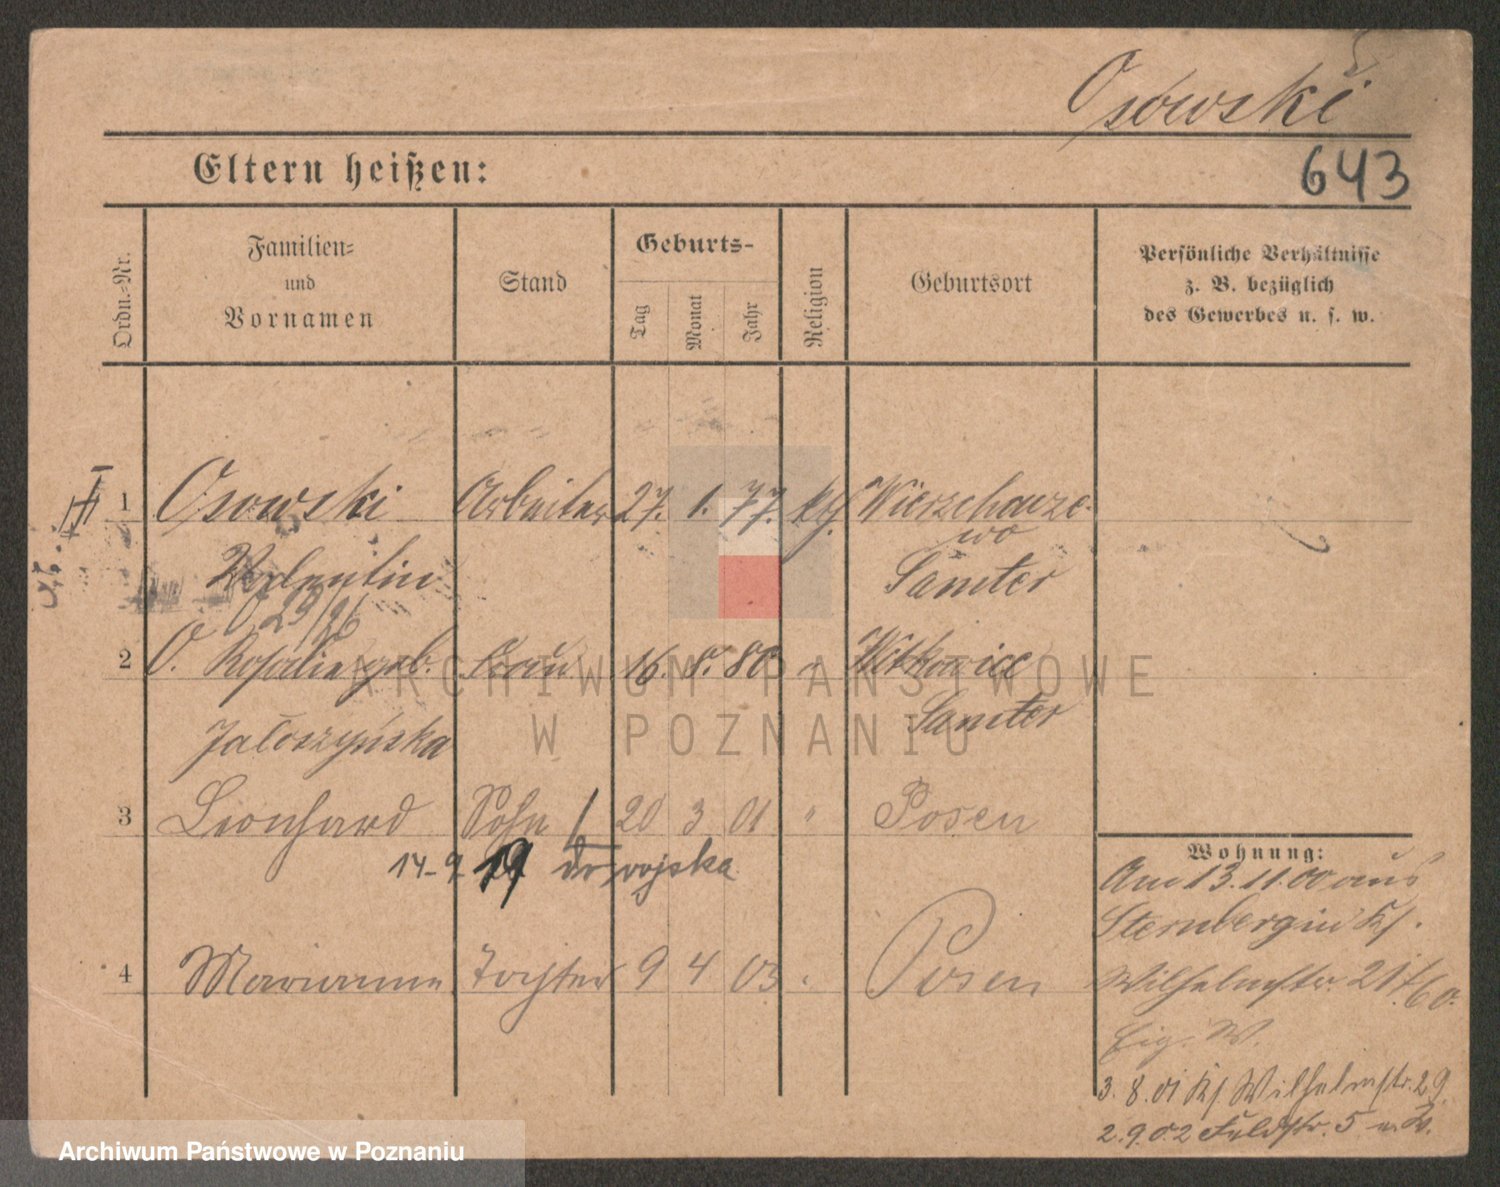 Osowski
Eltern heißen:
643
Ordn.-Nr.
Familien-
und
Vornamen
Stand
Geburts-
Tag
Monat
Jahr
Religion
Geburtsort
Persönliche Verhältnisse
z. B. bezüglich
des Gewerbes u. s. w.
1 Osowski Arbeiter 27. 1. 77. kth Wierzchacze-
wo
Valentin Samter
O 29/96
2 O. Rosalie geb. Frau 16. 8. 80 " Witkowice
Jaloszyńska Samter
3 Leonhard Sohn 20 3 01 " Posen
14-9 19 do wojska
4 Marianna Tochter 9 4 03 " Posen
Wohnung:
Am 13.11.00 aus
Sternberg in
Wilhelmstr.
Eig. W.
3.8.01 Wilhelmstr. 29
2.9.02 Feldstr. 5
ARCHIWUM PAŃSTWOWE
W POZNANIU
Archiwum Państwowe w Poznaniu